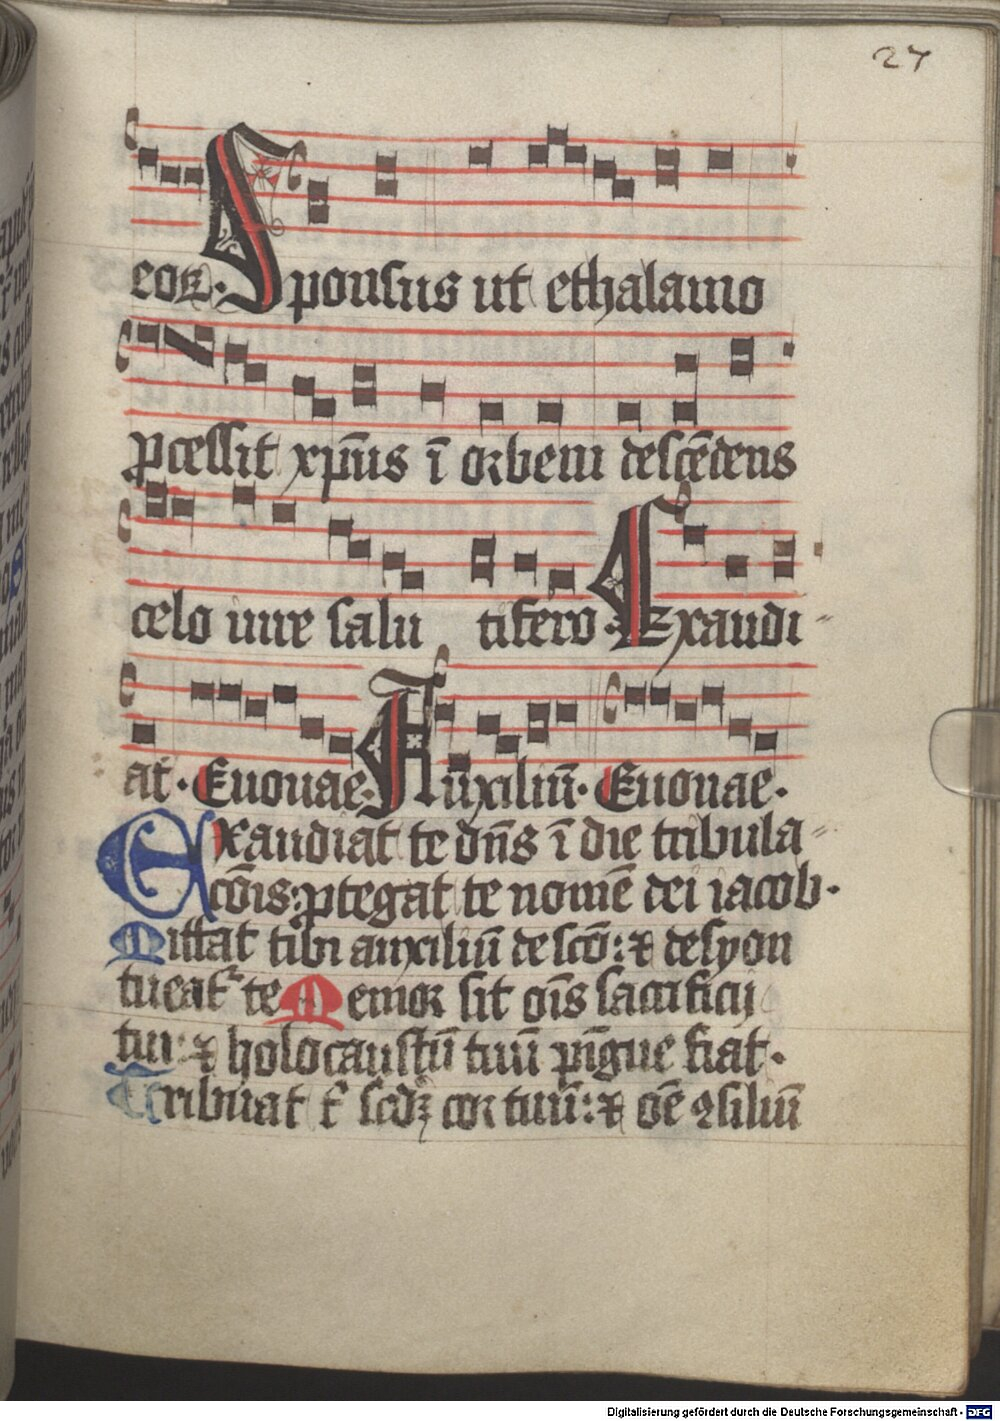 27
eoꝝ. Sponsus ut ethalamo
ꝓcessit xp̄us ī orbem descēdens
celo iure salu tifero. Exaudi⸗
at. Euouae. Auxiliū. Euouae.
Exaudiat te dn̄s ī die tribula⸗
cōis: ꝓtegat te nomē dei iacob.
Mittat tibi auxiliū de scō: ⁊ desyon
tueat᷑ te Memor sit oīs sacrificij
tui: ⁊ holocaustū tuū pīgue fiat.
Tribuat t̄ scdꝫ cor tuū: ⁊ oē ꝯsiliū
Digitalisierung gefördert durch die Deutsche Forschungsgemeinschaft - DFG